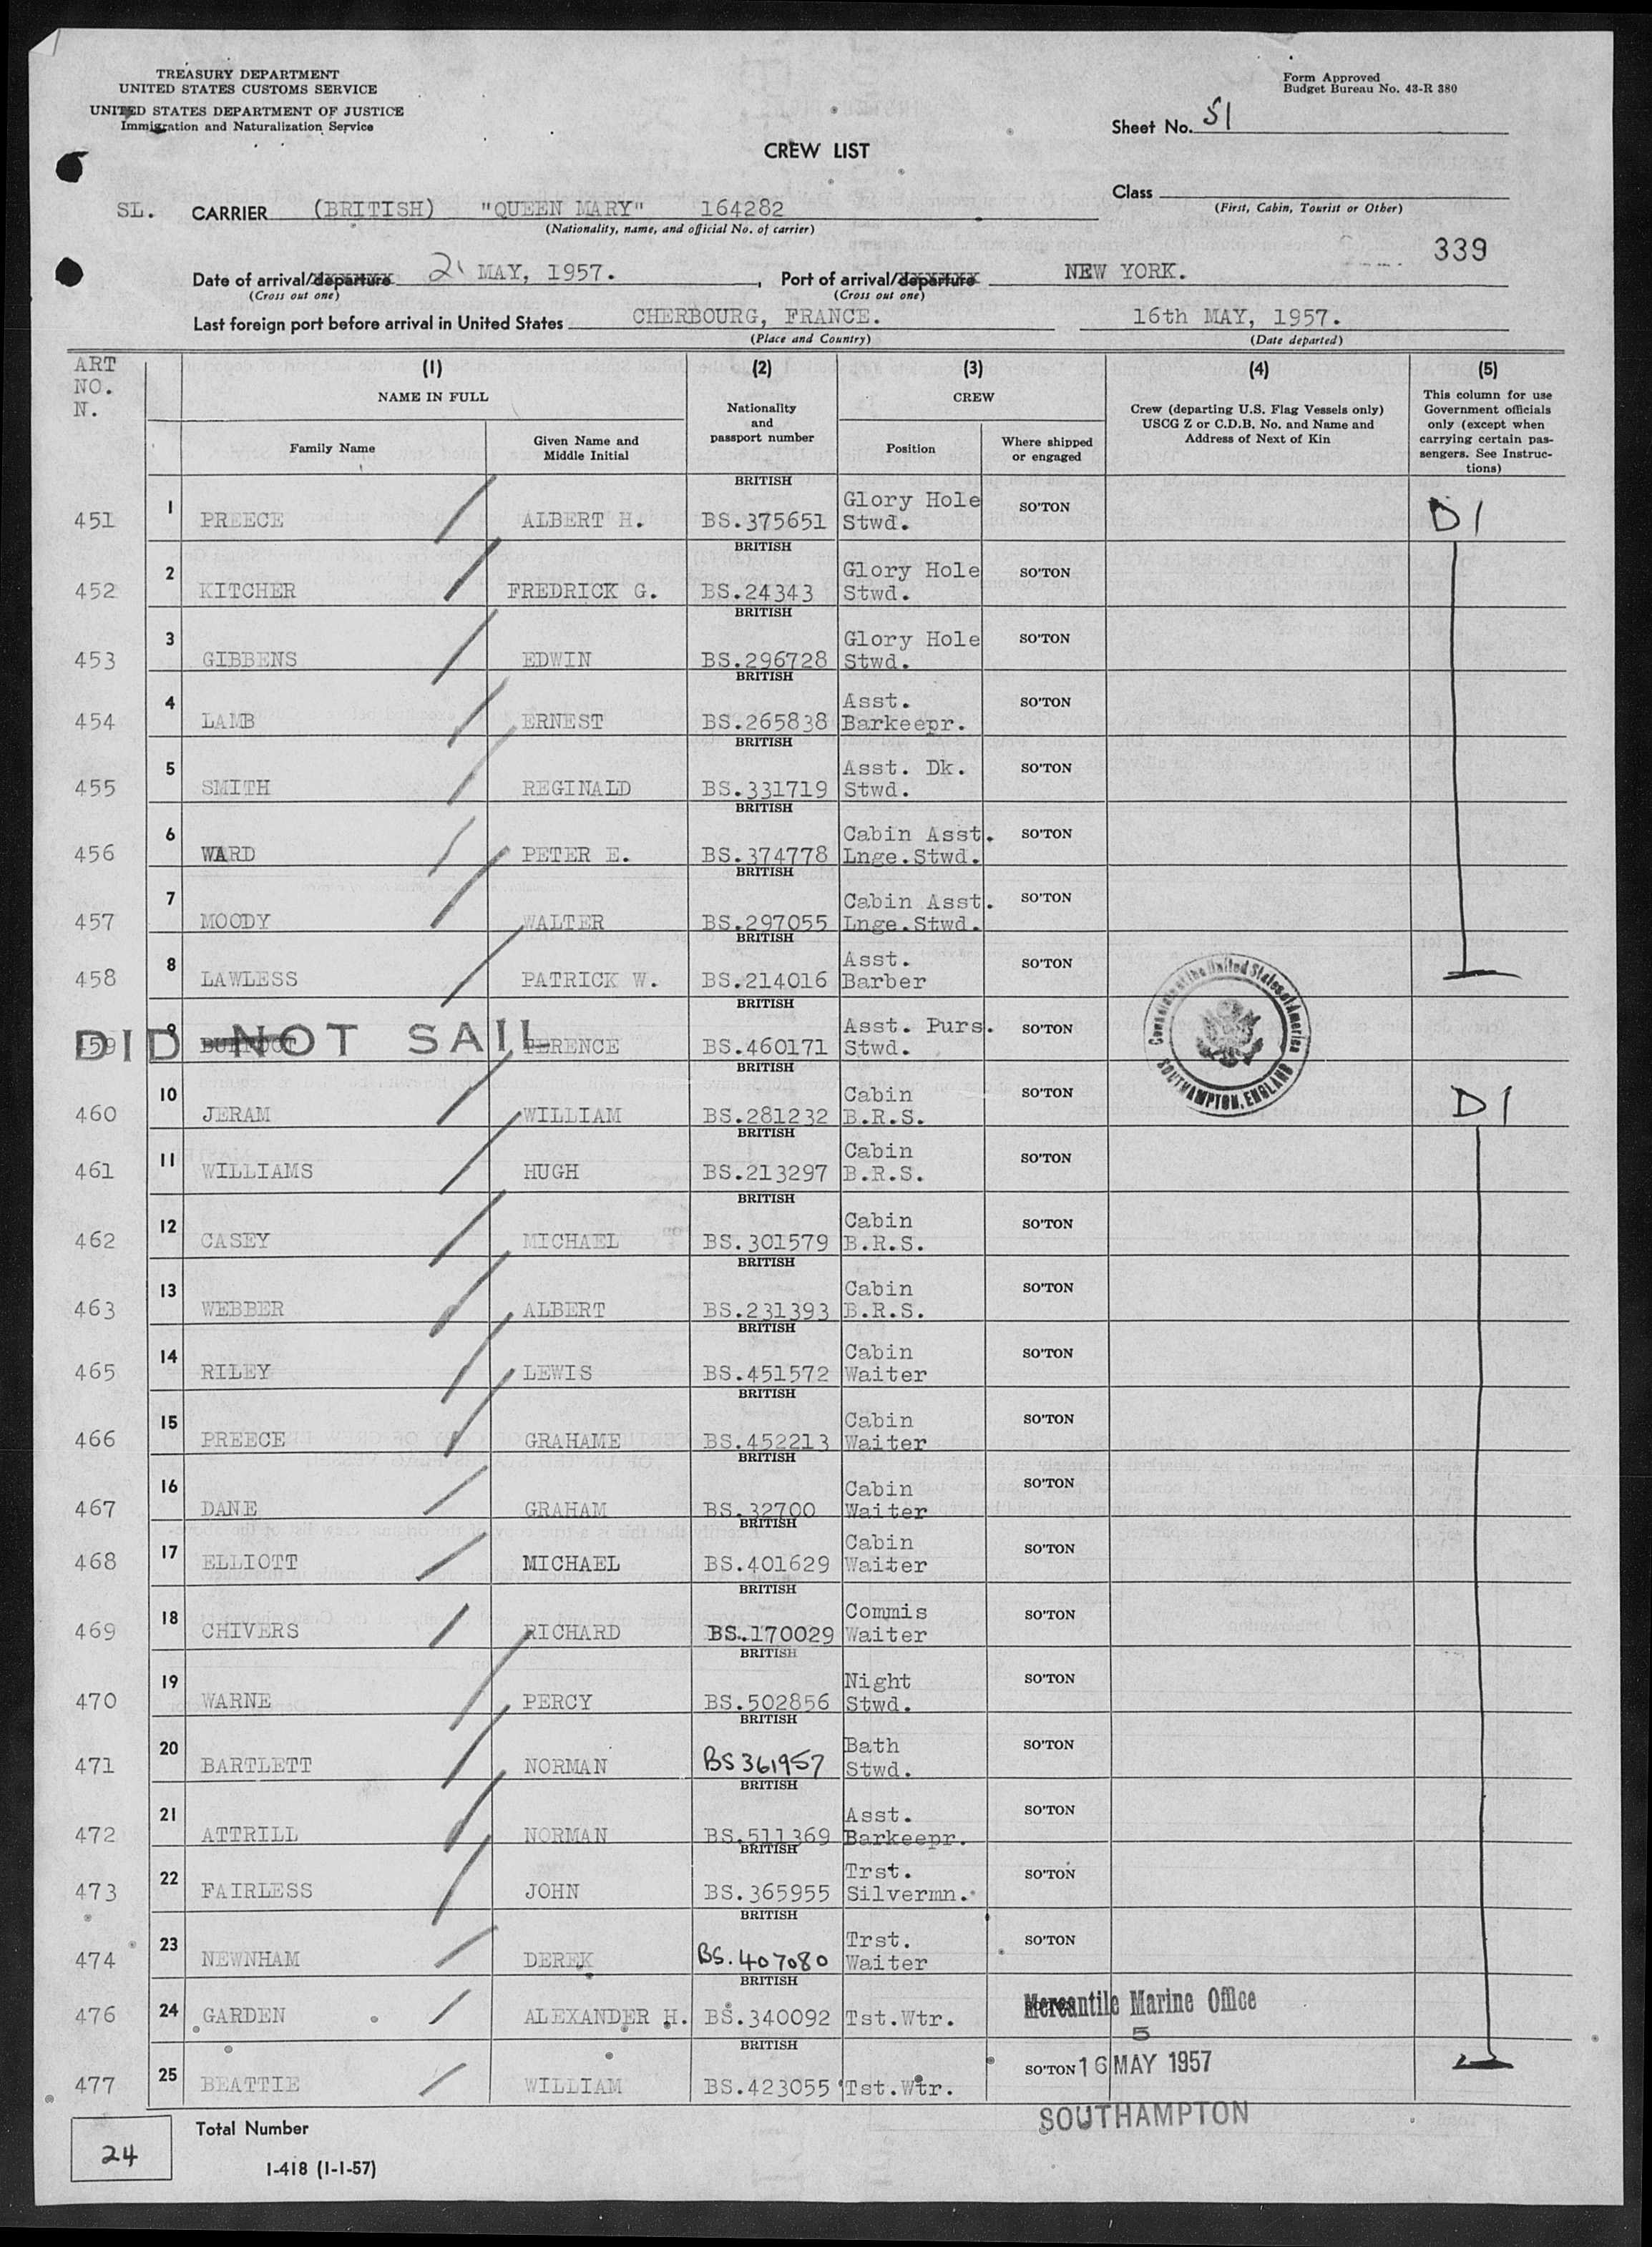 TREASURY DEPARTMENT
UNITED STATES CUSTOMS SERVICE
UNITED STATES DEPARTMENT OF JUSTICE
Immigration and Naturalization Service
Form Approved
Budget Bureau No. 43-R 380
Sheet No. 51
CREW LIST
Class
(First, Cabin, Tourist or Other)
SL. CARRIER (BRITISH) "QUEEN MARY" 164282
(Nationality, name, and official No. of carrier)
339
Date of arrival/departure 21 MAY, 1957. , Port of arrival/departure NEW YORK.
(Cross out one) (Cross out one)
Last foreign port before arrival in United States CHERBOURG, FRANCE. 16th MAY, 1957.
(Place and Country) (Date departed)
ART NO. N. (1) (2) (3) (4) (5)
NAME IN FULL Nationality and passport number CREW Crew (departing U.S. Flag Vessels only) USCG Z or C.D.B. No. and Name and Address of Next of Kin This column for use Government officials only (except when carrying certain passengers. See Instructions)
Family Name Given Name and Middle Initial Position Where shipped or engaged
451 1 PREECE ALBERT H. BRITISH BS.375651 Glory Hole Stwd. SO'TON D1
452 2 KITCHER FREDRICK G. BRITISH BS.24343 Glory Hole Stwd. SO'TON
453 3 GIBBENS EDWIN BRITISH BS.296728 Glory Hole Stwd. SO'TON
454 4 LAMB ERNEST BRITISH BS.265838 Asst. Barkeepr. SO'TON
455 5 SMITH REGINALD BRITISH BS.331719 Asst. Dk. Stwd. SO'TON
456 6 WARD PETER E. BRITISH BS.374778 Cabin Asst. Lnge.Stwd. SO'TON
457 7 MOODY WALTER BRITISH BS.297055 Cabin Asst. Lnge.Stwd. SO'TON
458 8 LAWLESS PATRICK W. BRITISH BS.214016 Asst. Barber SO'TON
459 9 DID NOT SAIL TERENCE BRITISH BS.460171 Asst. Purs. Stwd. SO'TON
Consulate of the United States of America
SOUTHAMPTON, ENGLAND
460 10 JERAM WILLIAM BRITISH BS.281232 Cabin B.R.S. SO'TON D1
461 11 WILLIAMS HUGH BRITISH BS.213297 Cabin B.R.S. SO'TON
462 12 CASEY MICHAEL BRITISH BS.301579 Cabin B.R.S. SO'TON
463 13 WEBBER ALBERT BRITISH BS.231393 Cabin B.R.S. SO'TON
465 14 RILEY LEWIS BRITISH BS.451572 Cabin Waiter SO'TON
466 15 PREECE GRAHAME BRITISH BS.452213 Cabin Waiter SO'TON
467 16 DANE GRAHAM BRITISH BS.32700 Cabin Waiter SO'TON
468 17 ELLIOTT MICHAEL BRITISH BS.401629 Cabin Waiter SO'TON
469 18 CHIVERS RICHARD BRITISH BS.170029 Commis Waiter SO'TON
470 19 WARNE PERCY BRITISH BS.502856 Night Stwd. SO'TON
471 20 BARTLETT NORMAN BRITISH BS361957 Bath Stwd. SO'TON
472 21 ATTRILL NORMAN BRITISH BS.511369 Asst. Barkeepr. SO'TON
473 22 FAIRLESS JOHN BRITISH BS.365955 Trst. Silvermn. SO'TON
474 23 NEWNHAM DEREK BRITISH BS.407080 Trst. Waiter SO'TON
476 24 GARDEN ALEXANDER H. BRITISH BS.340092 Tst.Wtr. Mercantile Marine Office
5
477 25 BEATTIE WILLIAM BRITISH BS.423055 Tst.Wtr. SO'TON 16 MAY 1957
SOUTHAMPTON
24 Total Number
I-418 (1-1-57)